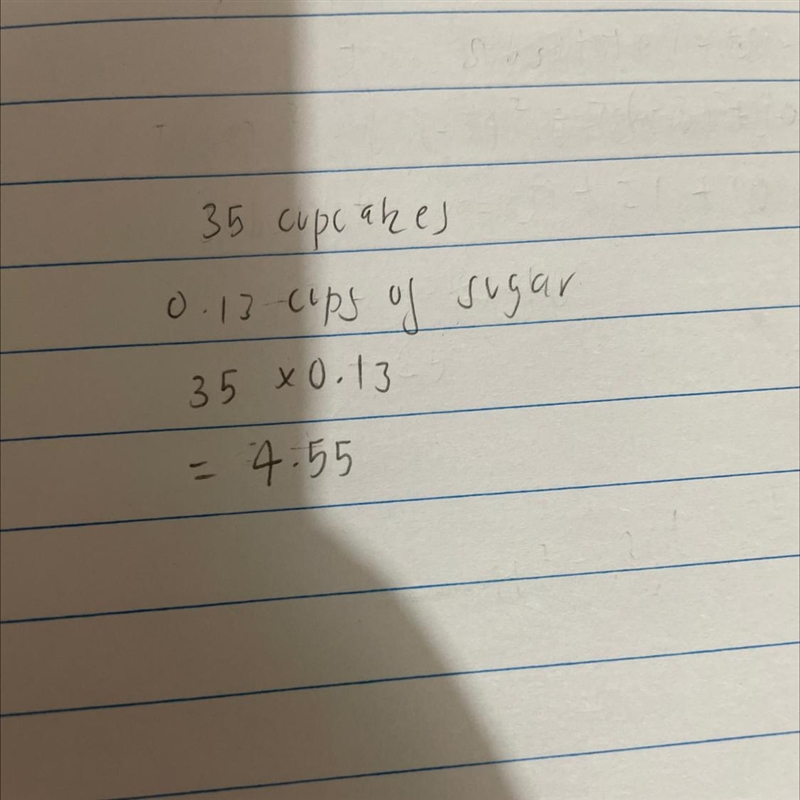 35 cupcakes
0.13 cups of sugar
35 × 0.13
= 4.55